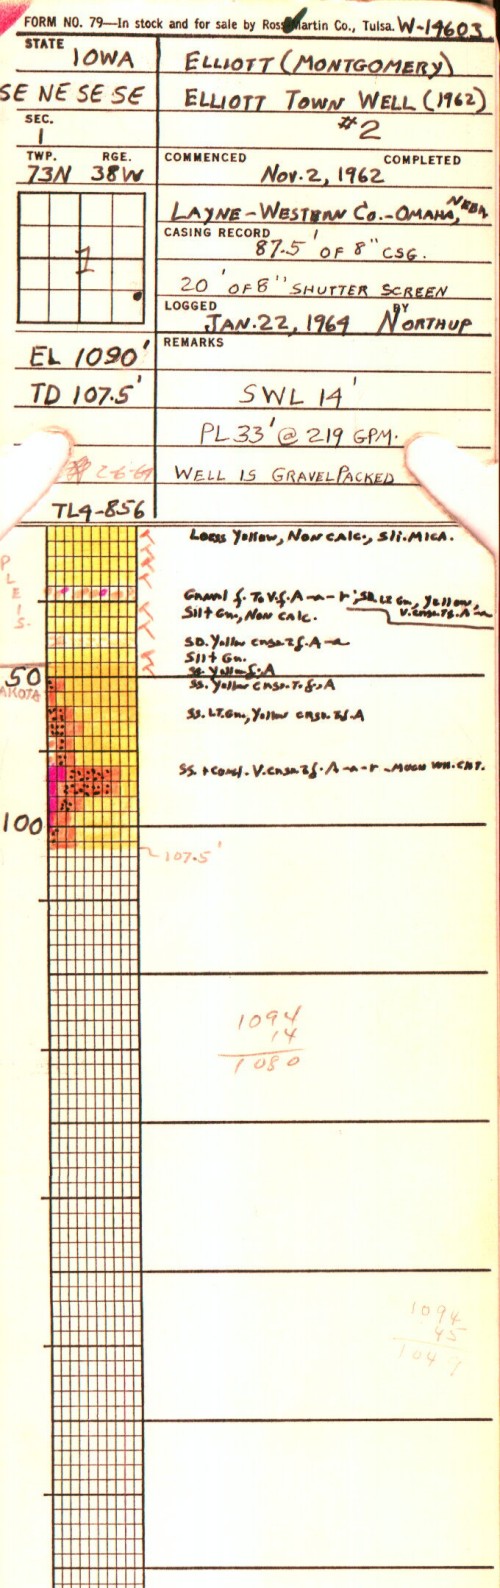 FORM NO. 79—In stock and for sale by Ross Martin Co., Tulsa. W-14603
STATE IOWA
ELLIOTT (MONTGOMERY)
SE NE SE SE
ELLIOTT TOWN WELL (1962)
SEC. 1
#2
TWP. RGE.
73N 38W
COMMENCED COMPLETED
Nov. 2, 1962
LAYNE-WESTERN CO.-OMAHA, NEBR.
CASING RECORD
87.5' OF 8" CSG.
1
20' OF 8" SHUTTER SCREEN
LOGGED BY
JAN. 22, 1964 NORTHUP
EL 1090'
REMARKS
TD 107.5'
SWL 14'
PL 33' @ 219 GPM.
2-6-64
WELL IS GRAVEL PACKED
TL4-856
PLEIS.
Loess Yellow, Non Calc., Sli. Mica.
Gravel f. To V.f. A-a-r; SD. LT Gn, Yellow,
V. crse. Tf. A-a
Silt Gn, Non Calc.
SD. Yellow crse. Tf. A-a
Silt Gn.
50
SS. Yellow crse. T. f. A
SS. LT. Gn, Yellow crse. Tf. A
SS. + Congl. V. crse. Tf. A-a-r - Much Wh. Cht.
100
107.5'
1094
14
1080
1094
45